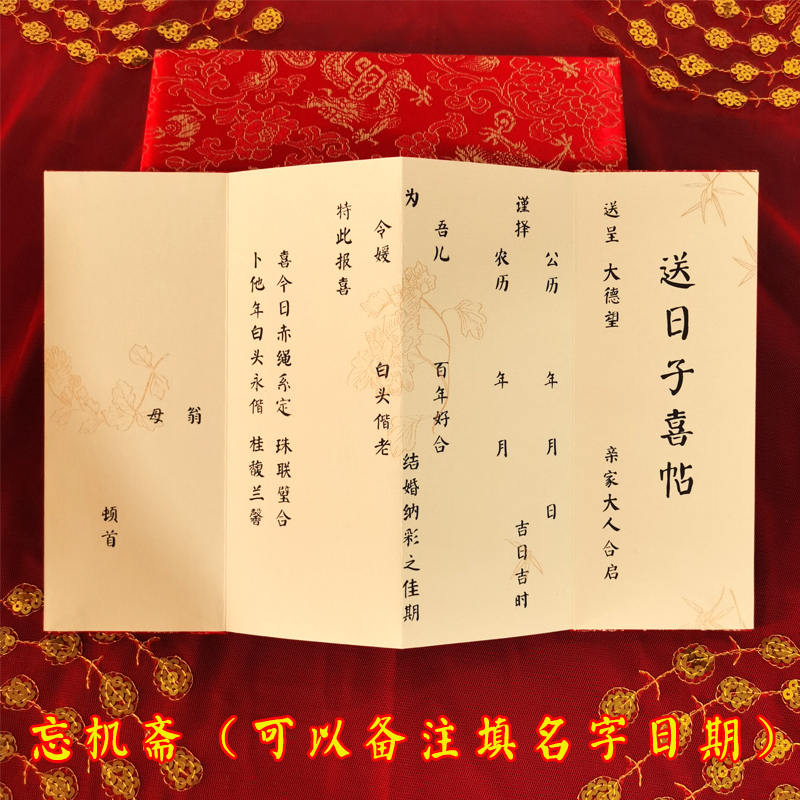 送日子喜帖
送呈 大德望 亲家大人合启
谨择 公历 年 月 日
农历 年 月 吉日吉时
为 吾儿 百年好合
令媛 白头偕老
结婚纳彩之佳期
特此报喜
喜今日赤绳系定 珠联璧合
卜他年白头永偕 桂馥兰馨
翁
母
顿首
忘机斋（可以备注填名字日期）